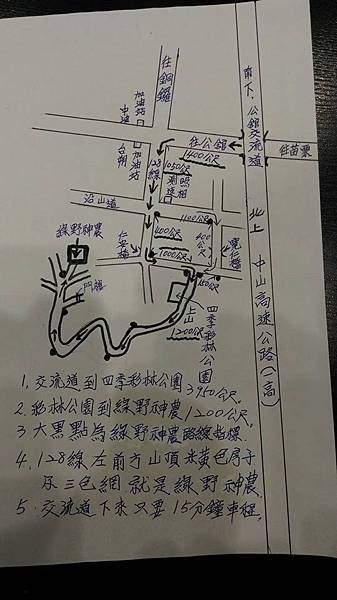 往銅鑼
加油站
中油
台朔
加油站
往公館
1400公尺
南下.公館交流道
往苗栗
北上
中山高速公路(一高)
128線
1050公尺
測速照相
沿山道
1100公尺
400公尺
400公尺
1000公尺
仁安橋
150公尺
綠野神農
門牌
上山
1200公尺
四季彩林公園
1.交流道到四季彩林公園3950公尺.
2.彩林公園到綠野神農1200公尺.
3 大黑點為綠野神農路線指標.
4.128線左前方山頂米黃色房子
及三色網就是綠野神農.
5.交流道下來只要15分鐘車程.